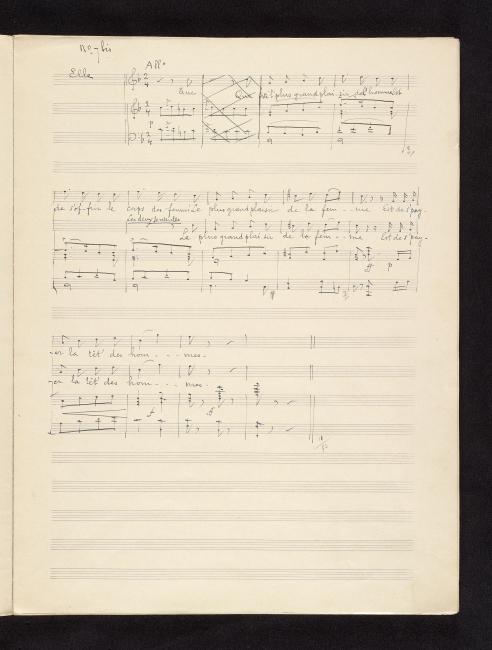 No 7 bis
All°
Elle
Que Que le plus grand plai - sir de l'homme est
p
de s'of - frir le corps des femm's Le plus grand plaisir de la fem - - me Est de s'pay -
Les deux ensemble
Le plus grand plai sir de la fem - - me Est de s'pay -
ff p
- er la têt' des hom - - - mes.
- er la têt' des hom - - - mes.
f ff